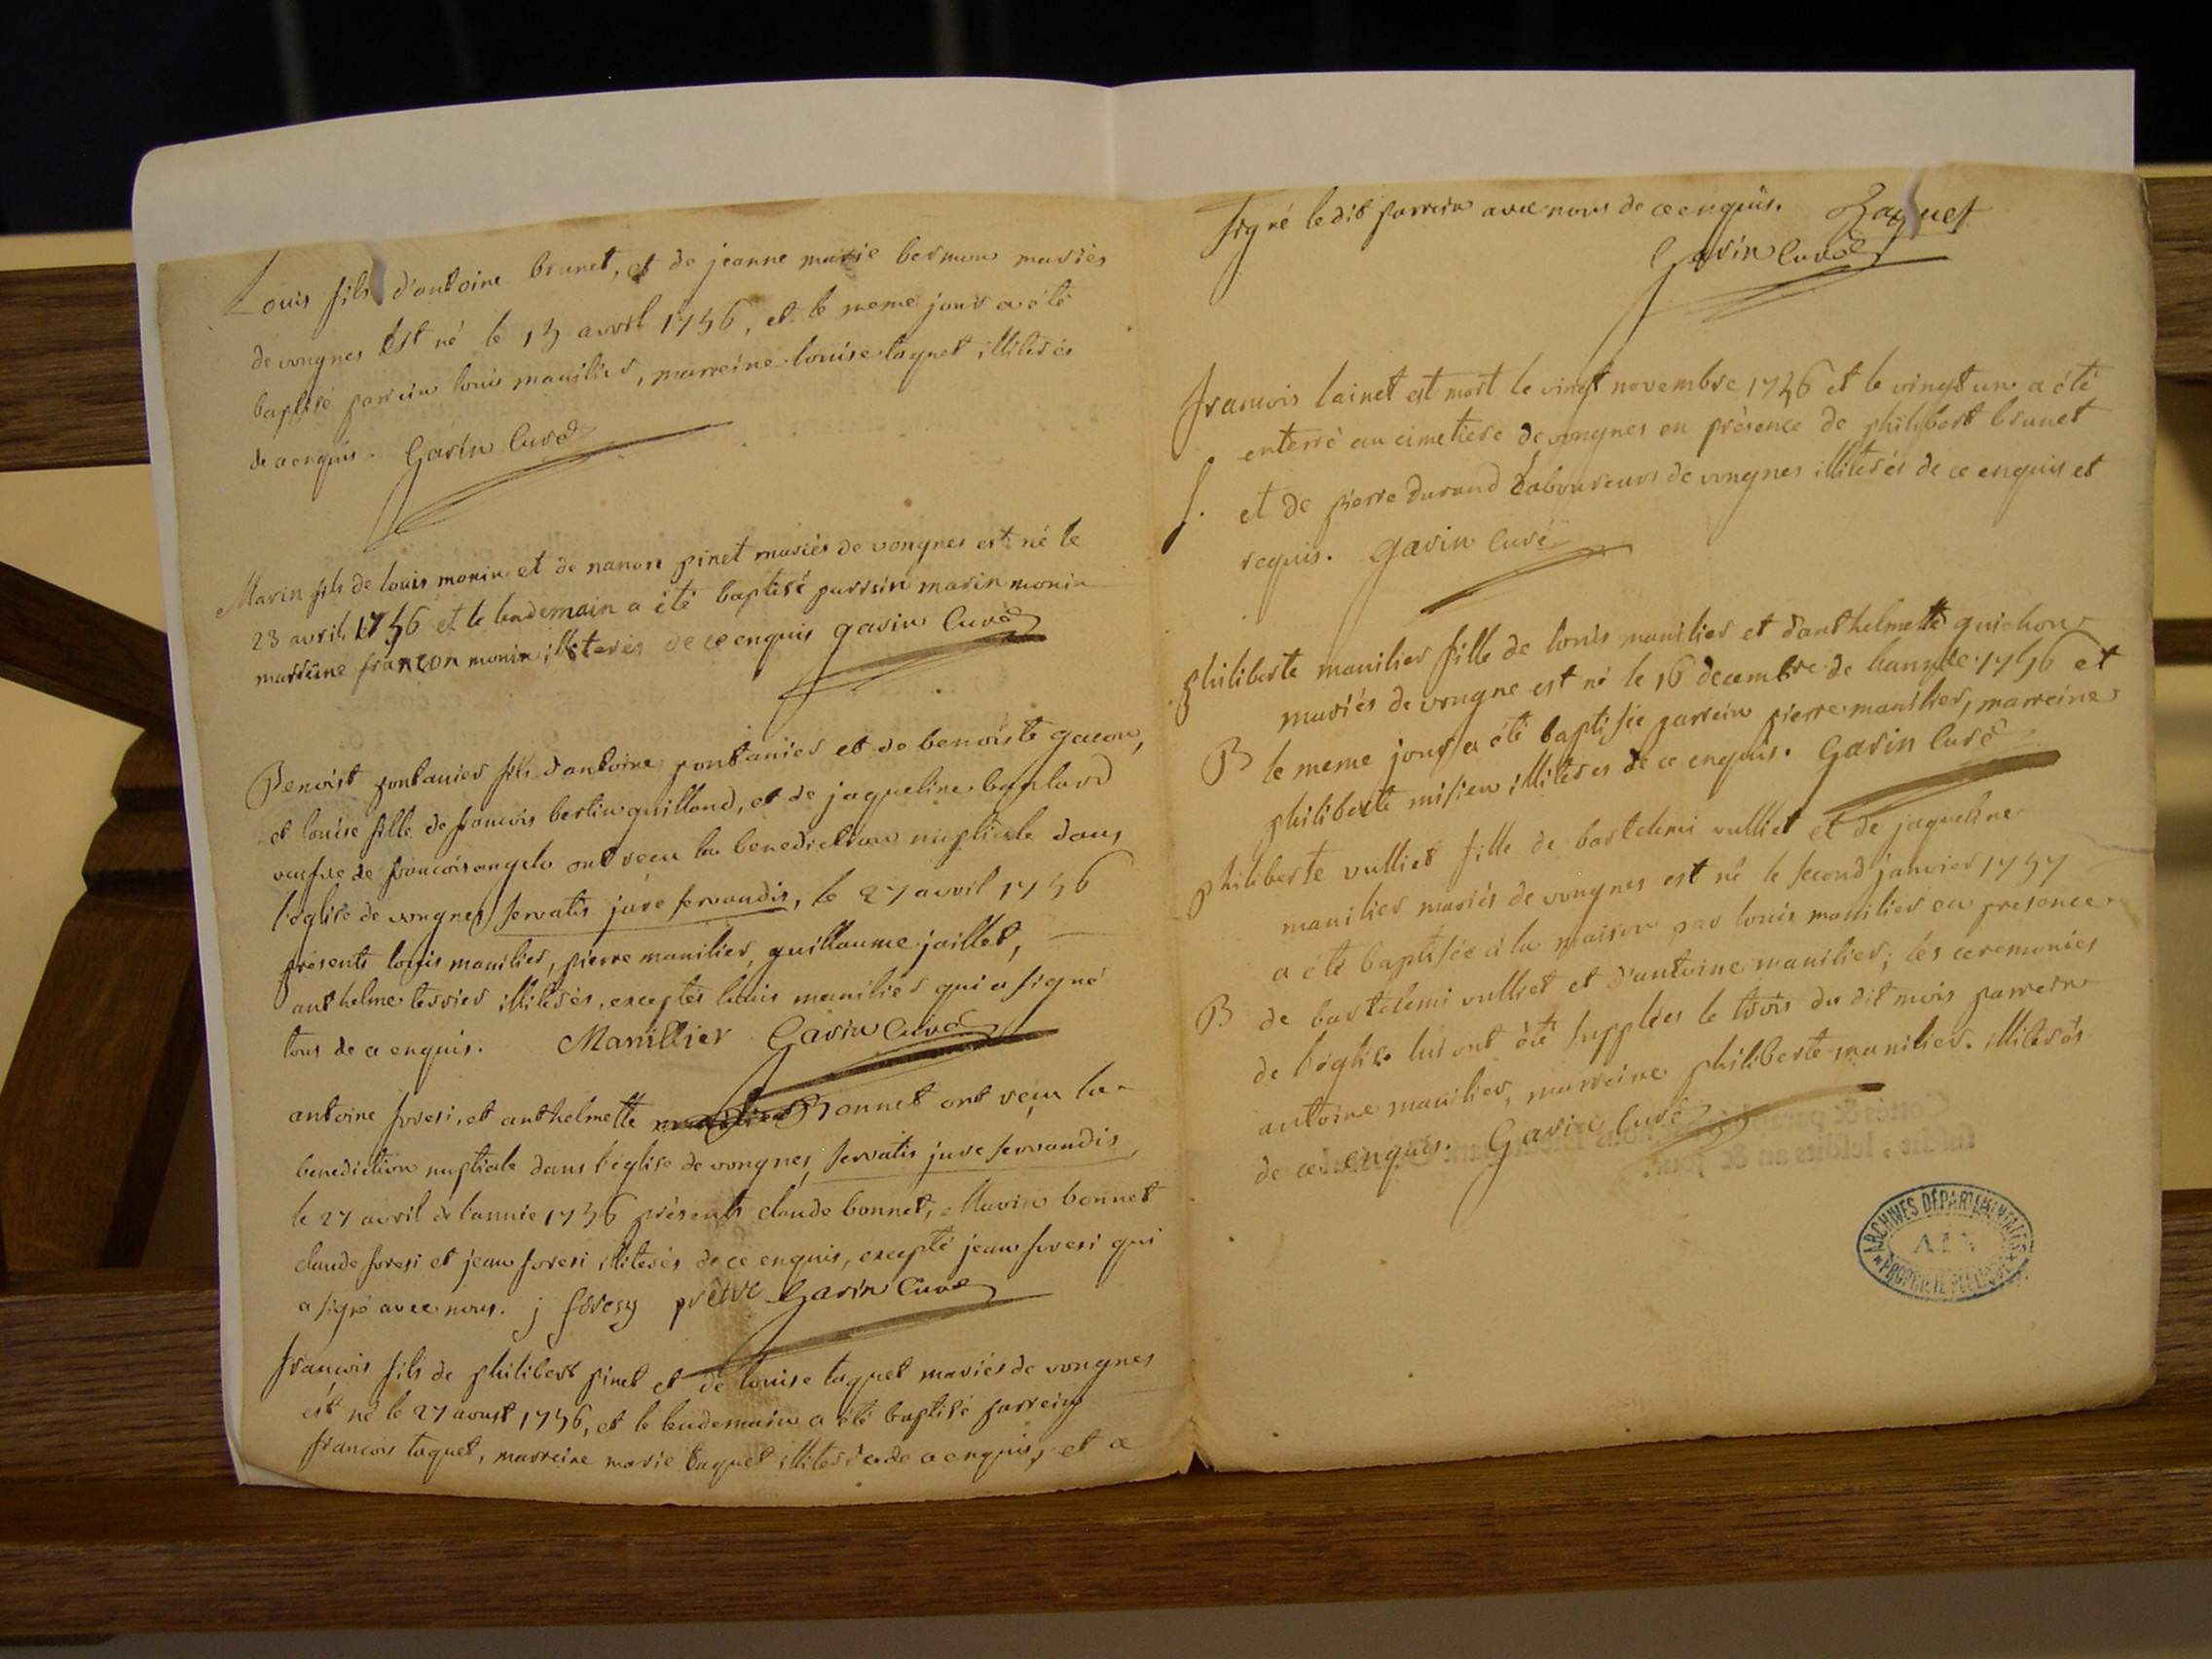 Louis fils d'antoine brunet, et de jeanne marie bermon mariés
de vongnes Est né le 13 avril 1756, et le meme jour a été
baptisé parrein louis manilier, marreine louise taquet illiterés
de ce enquis. Gavin Curé
Marin fils de louis monin et de nanon pinet mariés de vongnes est né le
23 avril 1756 et le lendemain a été baptisé parrein marin monin
marreine françon monin illiterés de ce enquis gavin Curé
Benoist pontanier fils d'antoine pontanier et de benoiste gacon,
et louise fille de francois bertin guilland, et de jaqueline
veufve de francois ont recu la benediction nuptiale dans
l'eglise de vongnes servatis jure servandis, le 27 avril 1756
présents louis manilier, pierre manilier, guillaume jaillet,
anthelme terrier illiterés, exceptés louis manilier qui a signé
tous de ce enquis. Manillier Gavin Curé
antoine foresi, et anthelmette Bonnet ont reçu la
benediction nuptiale dans l'eglise de vongnes, servatis jure servandis,
le 27 avril de l'année 1756 présents claude bonnet, Marin bonnet
claude foresi et jean foresi illiterés de ce enquis, excepté jean foresi qui
a signé avec nous. j foresy prêtre Gavin Curé
francois fils de philibert pinet et de louise taquet mariés de vongnes
est né le 27 aoust 1756, et le lendemain a été baptisé parrein
francois taquet, marreine marie taquet de ce enquis, et a
signé ledit parrein avec nous de ce enquis. Taquet
Gavin Curé
francois lainet est mort le vingt novembre 1756 et le vingt un a été
enterré au cimetiere de vongnes en présence de philibert brunet
S. et de pierre durand Laboureurs de vongnes illiterés de ce enquis et
requis. gavin Curé
philiberte manilier fille de louis manilier et d'anthelmette guichon
mariés de vongne est né le 16 decembre de l'année 1756 et
B le meme jour a été baptisée parrein pierre manilier, marreine
philiberte misieu illiterés de ce enquis. Gavin Curé
philiberte vulliet fille de bartelemi vulliet et de jaqueline
manilier mariés de vongnes est né le second janvier 1757
a été baptisée à la maison par louis manilier en presence
B de bartelemi vulliet et d'antoine manilier; les ceremonies
de l'eglise lui ont été supplées le trois du dit mois parrein
antoine manilier, marreine philiberte manilier. illiterés
de ce enquis. Gavin Curé
ARCHIVES DÉPARTEMENTALES
AIN
PROPRIÉTÉ PUBLIQUE